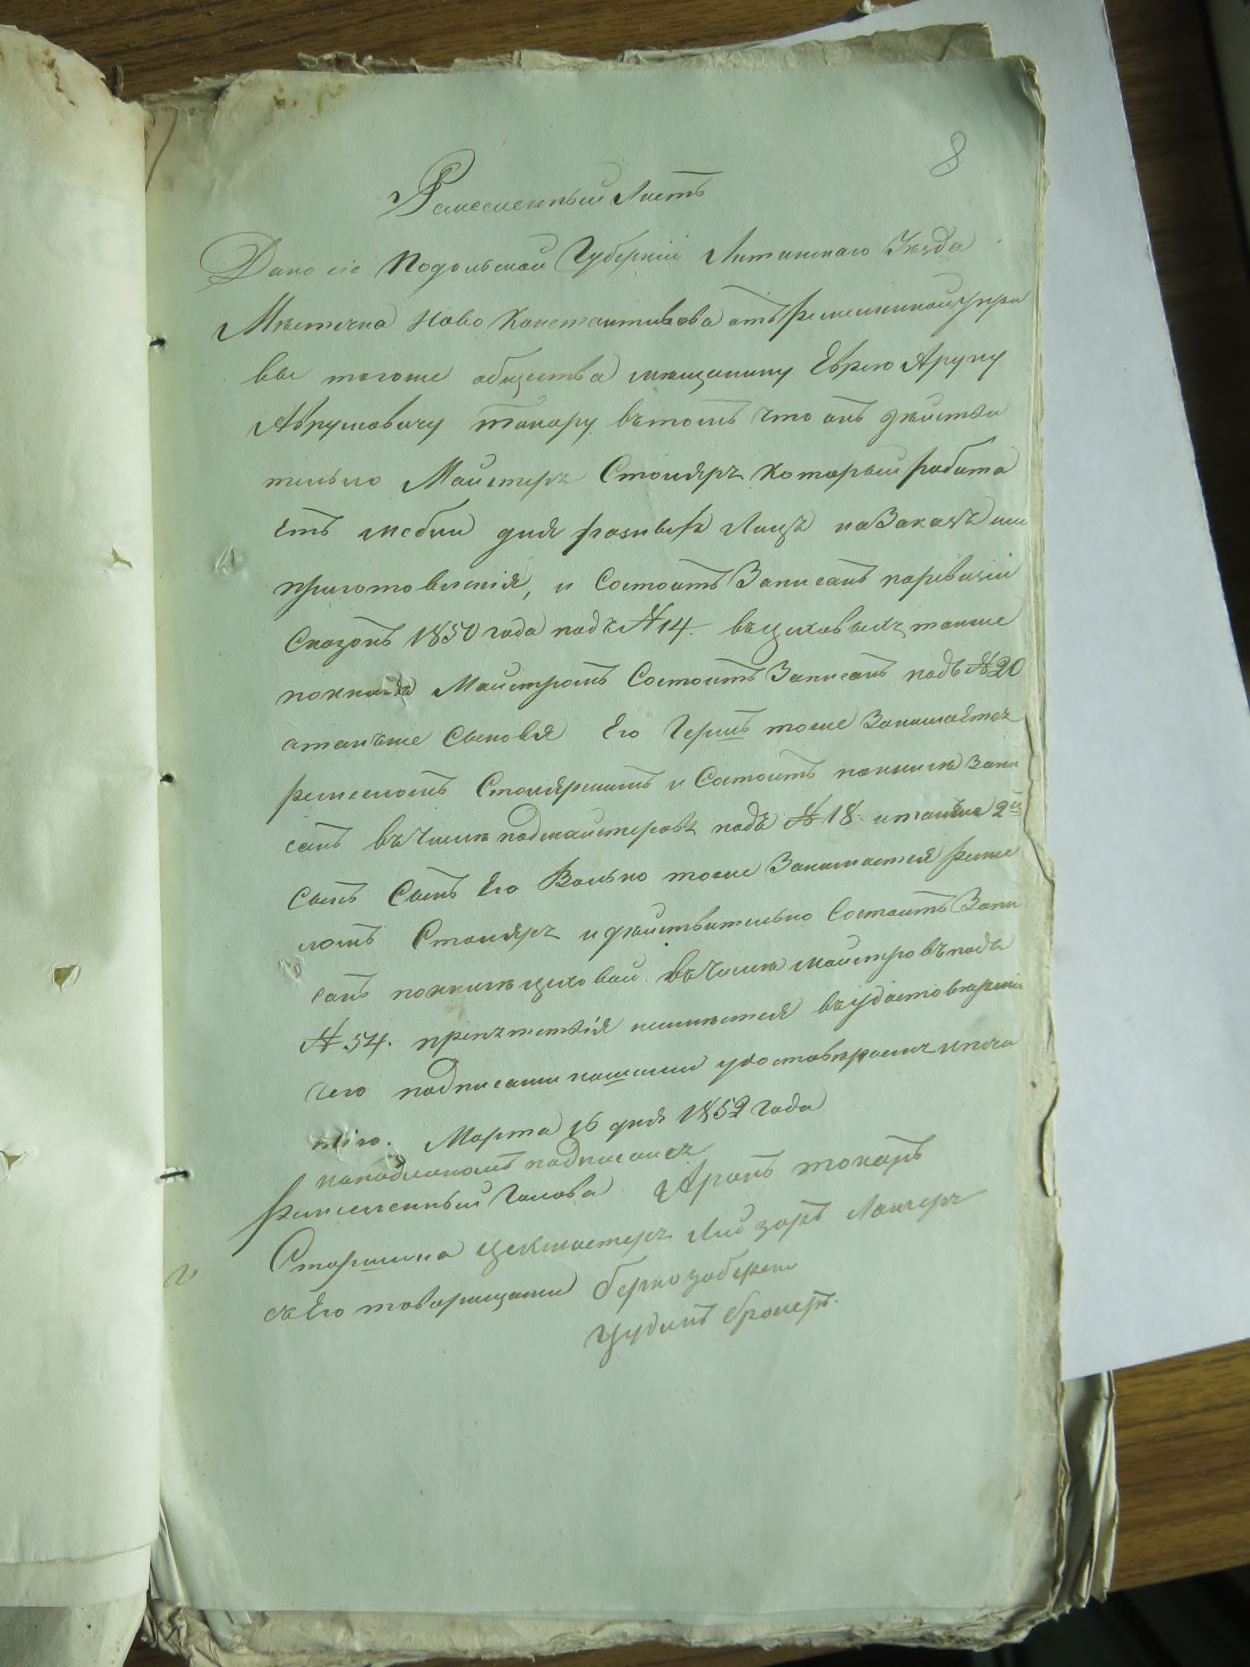 8
Ремесленный Листъ
Дано сіе Подольской Губерніи Литинскаго Уезда
Мѣстечка Ново Константинова отъ Ремесленной Упра
вы тогоже общества мещанину Еврею Аруну
Аврумовичу Токару вътомъ что онъ дѣйстви
тельно Маистеръ Столяръ который работа
етъ мебли для разныхъ Лицъ на Заказъ
приготовленія, и Состоитъ Записанъ поревизіи
Сказкѣ 1850 года подъ № 14. въцеховыхъ также
покнигѣ Маистромъ Состоитъ Записанъ подъ № 20
атакъже сыновья Его Гершъ тоже Занимаетса
ремесломъ Столярскимъ и Состоитъ покниги Запи
санъ въ Числѣ подмайстеровъ подъ № 18. итакже 2й
сынъ Сынъ Его Волько тоже Занимается реме
сломъ Столяръ идѣйствительно Состоитъ Запи
санъ покнигѣ цеховой въ Числѣ майстровъ подъ
№ 54. препетствія неимется въудостовѣреніи
чего подписами нашими удостовѣряемъ ипеча
тію. Марта 16 дня 1852 года
наподленомъ подписалсъ
Ремесленный Голова Аронъ токаръ
Старшина цехмастеръ Лангеръ
съ Его товарищами Берко